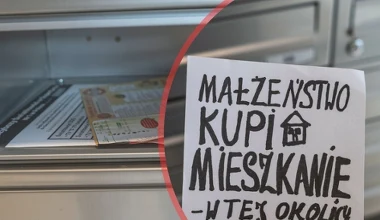 MAŁŻEŃSTWO
KUPI
MIESZKANIE
- W TEJ OKOLICY